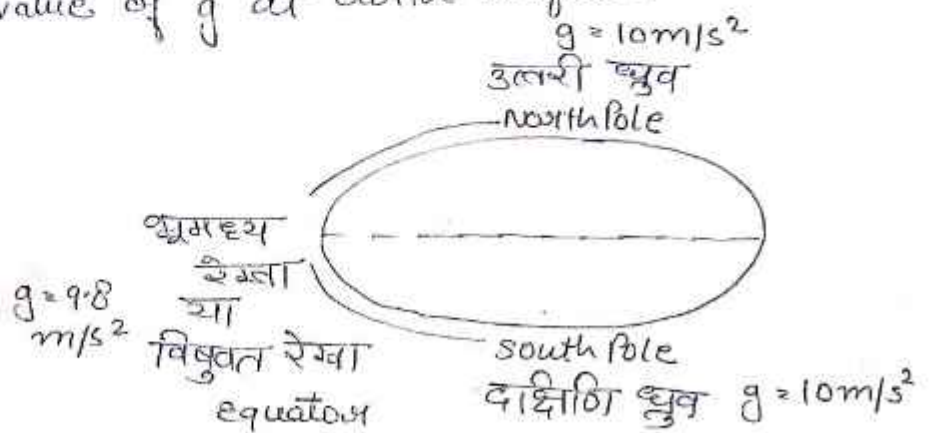 value of g at
g = 10m/s²
उत्तरी ध्रुव
North Pole
भूमध्य
रेखा
या
विषुवत रेखा
equator
g = 9.8
m/s²
South Pole
दाक्षिणि ध्रुव g = 10m/s²